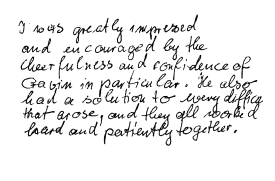 I was greatly impressed
and encouraged by the
cheerfulness and confidence of
Gavin in particular. He also
had a solution to every difficu
that arose, and they all worked
hard and patiently together.